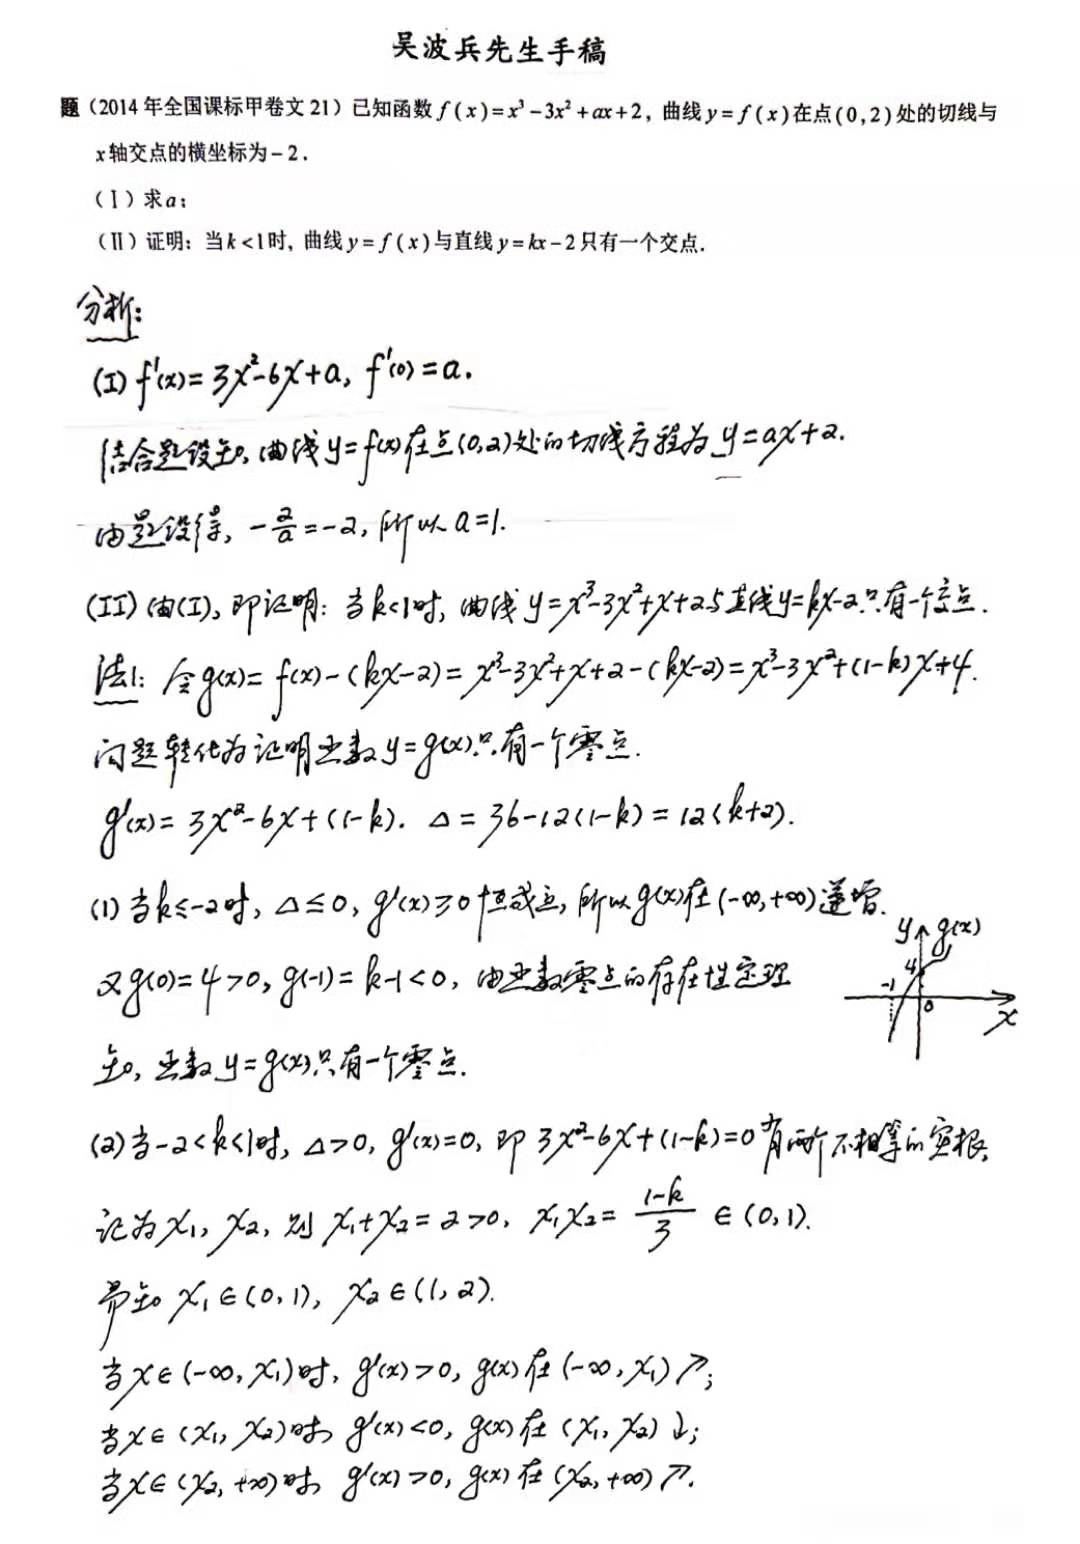 吴波兵先生手稿
题（2014年全国课标甲卷文21）已知函数f(x)=x³-3x²+ax+2，曲线y=f(x)在点(0,2)处的切线与
x轴交点的横坐标为-2．
（Ⅰ）求a；
（Ⅱ）证明：当k<1时，曲线y=f(x)与直线y=kx-2只有一个交点．
分析：
(I) f'(x)=3x²-6x+a, f'(0)=a.
结合题设知，曲线y=f(x)在点(0,2)处的切线方程为y=ax+2.
由题设得，-2/a=-2，所以a=1.
(II) 由(I)，即证明：当k<1时，曲线y=x³-3x²+x+2与直线y=kx-2只有一个交点.
法1: 令g(x)=f(x)-(kx-2)=x³-3x²+x+2-(kx-2)=x³-3x²+(1-k)x+4.
问题转化为证明函数y=g(x)只有一个零点.
g'(x)=3x²-6x+(1-k). △=36-12(1-k)=12(k+2).
(1) 当k≤-2时，△≤0, g'(x)≥0恒成立，所以g(x)在(-∞,+∞)递增.
又g(0)=4>0, g(-1)=k-1<0，由函数零点的存在性定理
y g(x)
4
-1 0 x
知，函数y=g(x)只有一个零点.
(2) 当-2<k<1时，△>0, g'(x)=0，即3x²-6x+(1-k)=0有两个不相等的实根，
记为x₁, x₂，则x₁+x₂=2>0, x₁x₂=(1-k)/3∈(0,1).
易知x₁∈(0,1), x₂∈(1,2).
当x∈(-∞,x₁)时，g'(x)>0, g(x)在(-∞,x₁)↗;
当x∈(x₁,x₂)时，g'(x)<0, g(x)在(x₁,x₂)↓;
当x∈(x₂,+∞)时，g'(x)>0, g(x)在(x₂,+∞)↗.